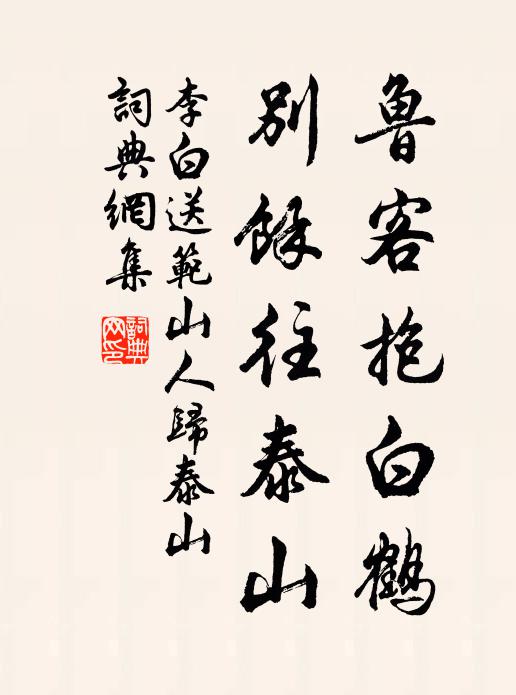 魯客抱白鶴
別餘往泰山
李白送範山人歸泰山
詞典網集
詞典
网印